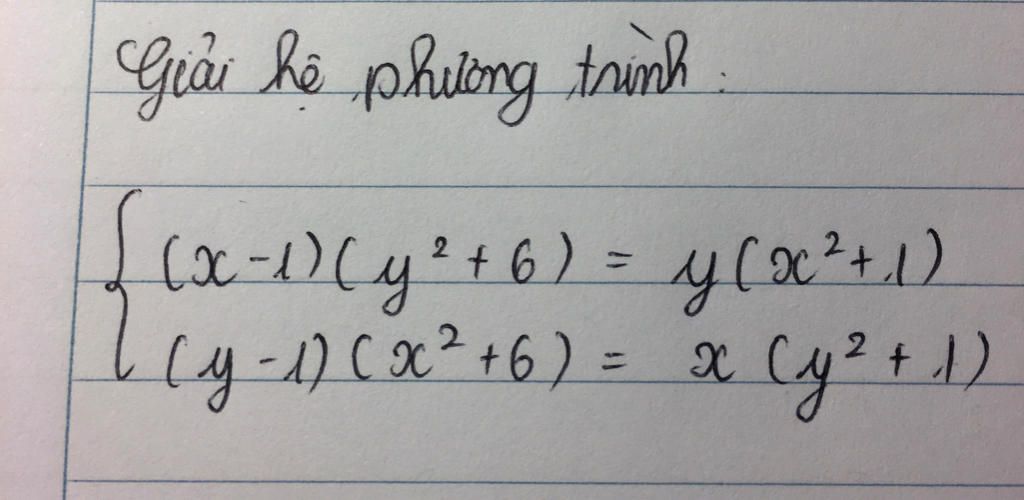 Giải hệ phương trình:
(x-1)(y²+6) = y(x²+1)
(y-1)(x²+6) = x(y²+1)